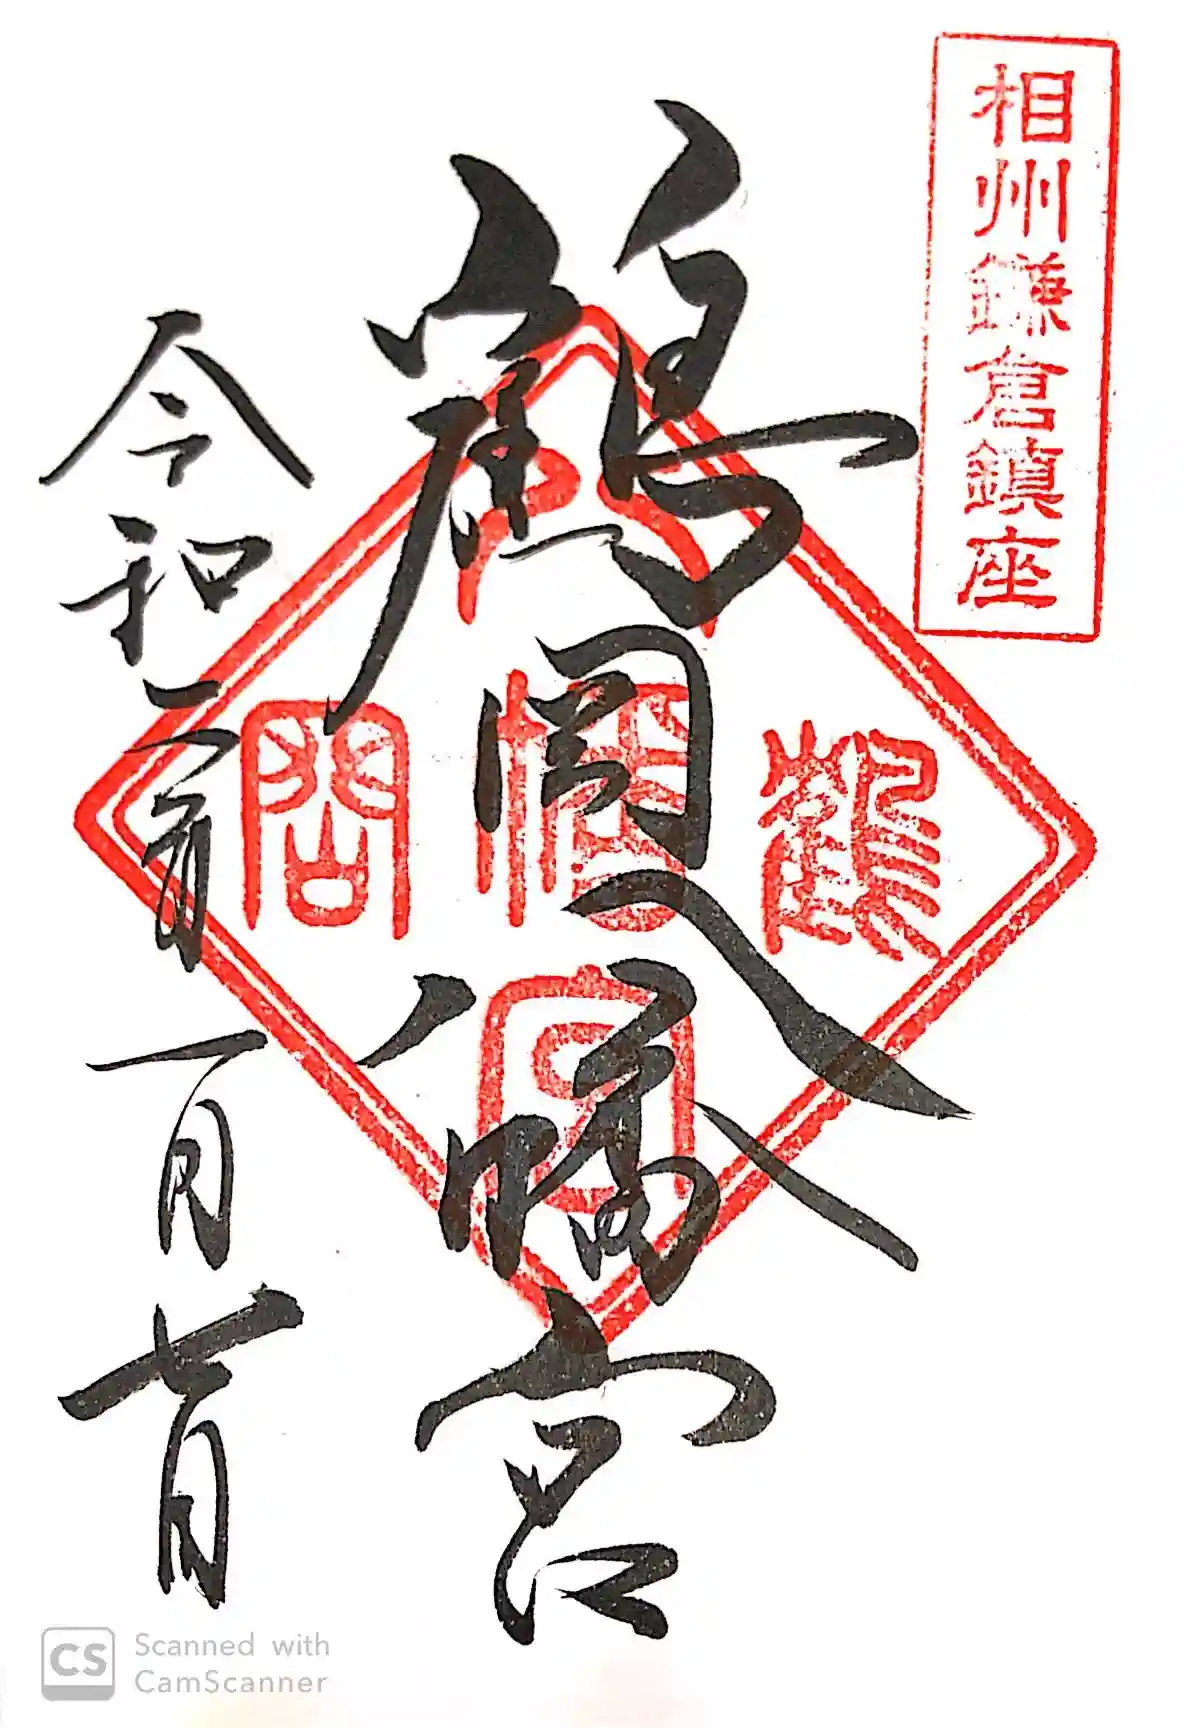 相州鎌倉鎮座
鶴岡八幡宮
鶴岡八幡宮
令和二年一月七日
CS Scanned with
CamScanner